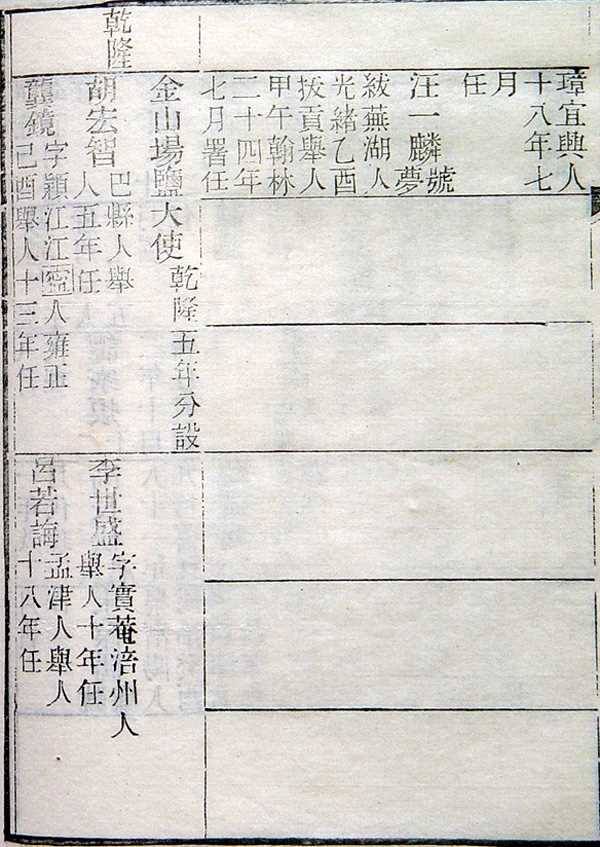 璋宜興人
十八年七
月
任
汪一麟號夢
紱蕪湖人
光緒乙酉
拔貢舉人
甲午翰林
二十四年
七月署任
金山場鹽大使乾隆五年分設
乾隆
胡宏智巴縣人舉
人五年任
李世盛字實菴涪州人
舉人十年任
龔鏡字穎江江寧人雍正
己酉舉人十三年任
呂若誨孟津人舉人
十八年任